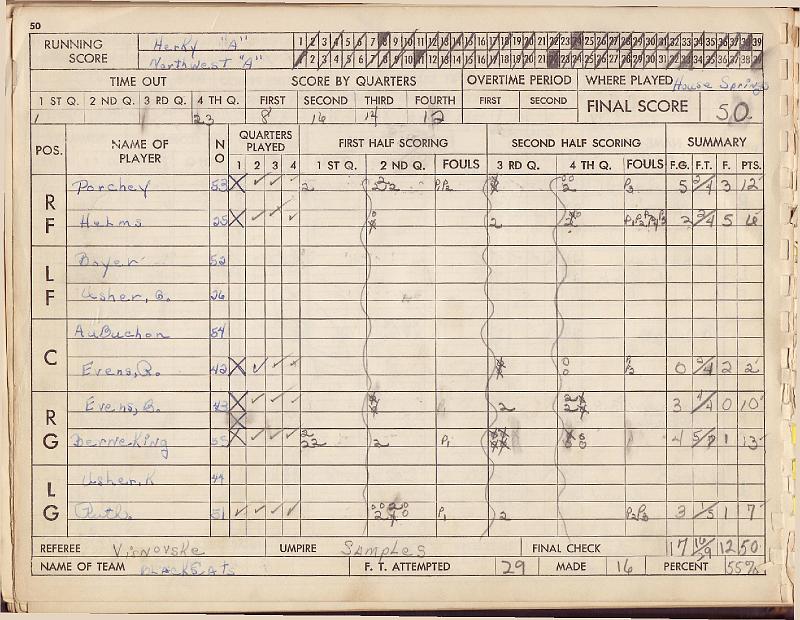 50
RUNNING SCORE Herky "A" 1 2 3 4 5 6 7 8 9 10 11 12 13 14 15 16 17 18 19 20 21 22 23 24 25 26 27 28 29 30 31 32 33 34 35 36 37 38 39
Northwest "A" 1 2 3 4 5 6 7 8 9 10 11 12 13 14 15 16 17 18 19 20 21 22 23 24 25 26 27 28 29 30 31 32 33 34 35 36 37 38 39
TIME OUT SCORE BY QUARTERS OVERTIME PERIOD WHERE PLAYED House Springs
1 ST Q. 2 ND Q. 3 RD Q. 4 TH Q. FIRST SECOND THIRD FOURTH FIRST SECOND FINAL SCORE 50
1 23 8 16 14 12
POS. NAME OF PLAYER NO QUARTERS PLAYED FIRST HALF SCORING SECOND HALF SCORING SUMMARY
1 2 3 4 1 ST Q. 2 ND Q. FOULS 3 RD Q. 4 TH Q. FOULS F.G. F.T. F. PTS.
RF Porchey 53 X ✓ ✓ ✓ 2 P1 P2 2 P3 5 2/4 3 12
Helms 25 X ✓ ✓ ✓ 2 2 2/4 5 6
LF Boyer 52
Usher, G. 26
C AuBuchon 54
Evens, R. 42 X ✓ ✓ ✓ 0 2/4 2 2
RG Evens, B. 43 X ✓ ✓ ✓ 2 3 4/4 0 10
Berneking 55 X ✓ ✓ ✓ 2 22 2 P1 4 5/7 1 13
LG Usher, K 44
Ruth 51 ✓ ✓ ✓ ✓ P1 2 P2 P3 3 1/5 1 7
REFEREE Virnovske UMPIRE Samples FINAL CHECK 17 16/29 12 50
NAME OF TEAM BLACKCATS F. T. ATTEMPTED 29 MADE 16 PERCENT 55%